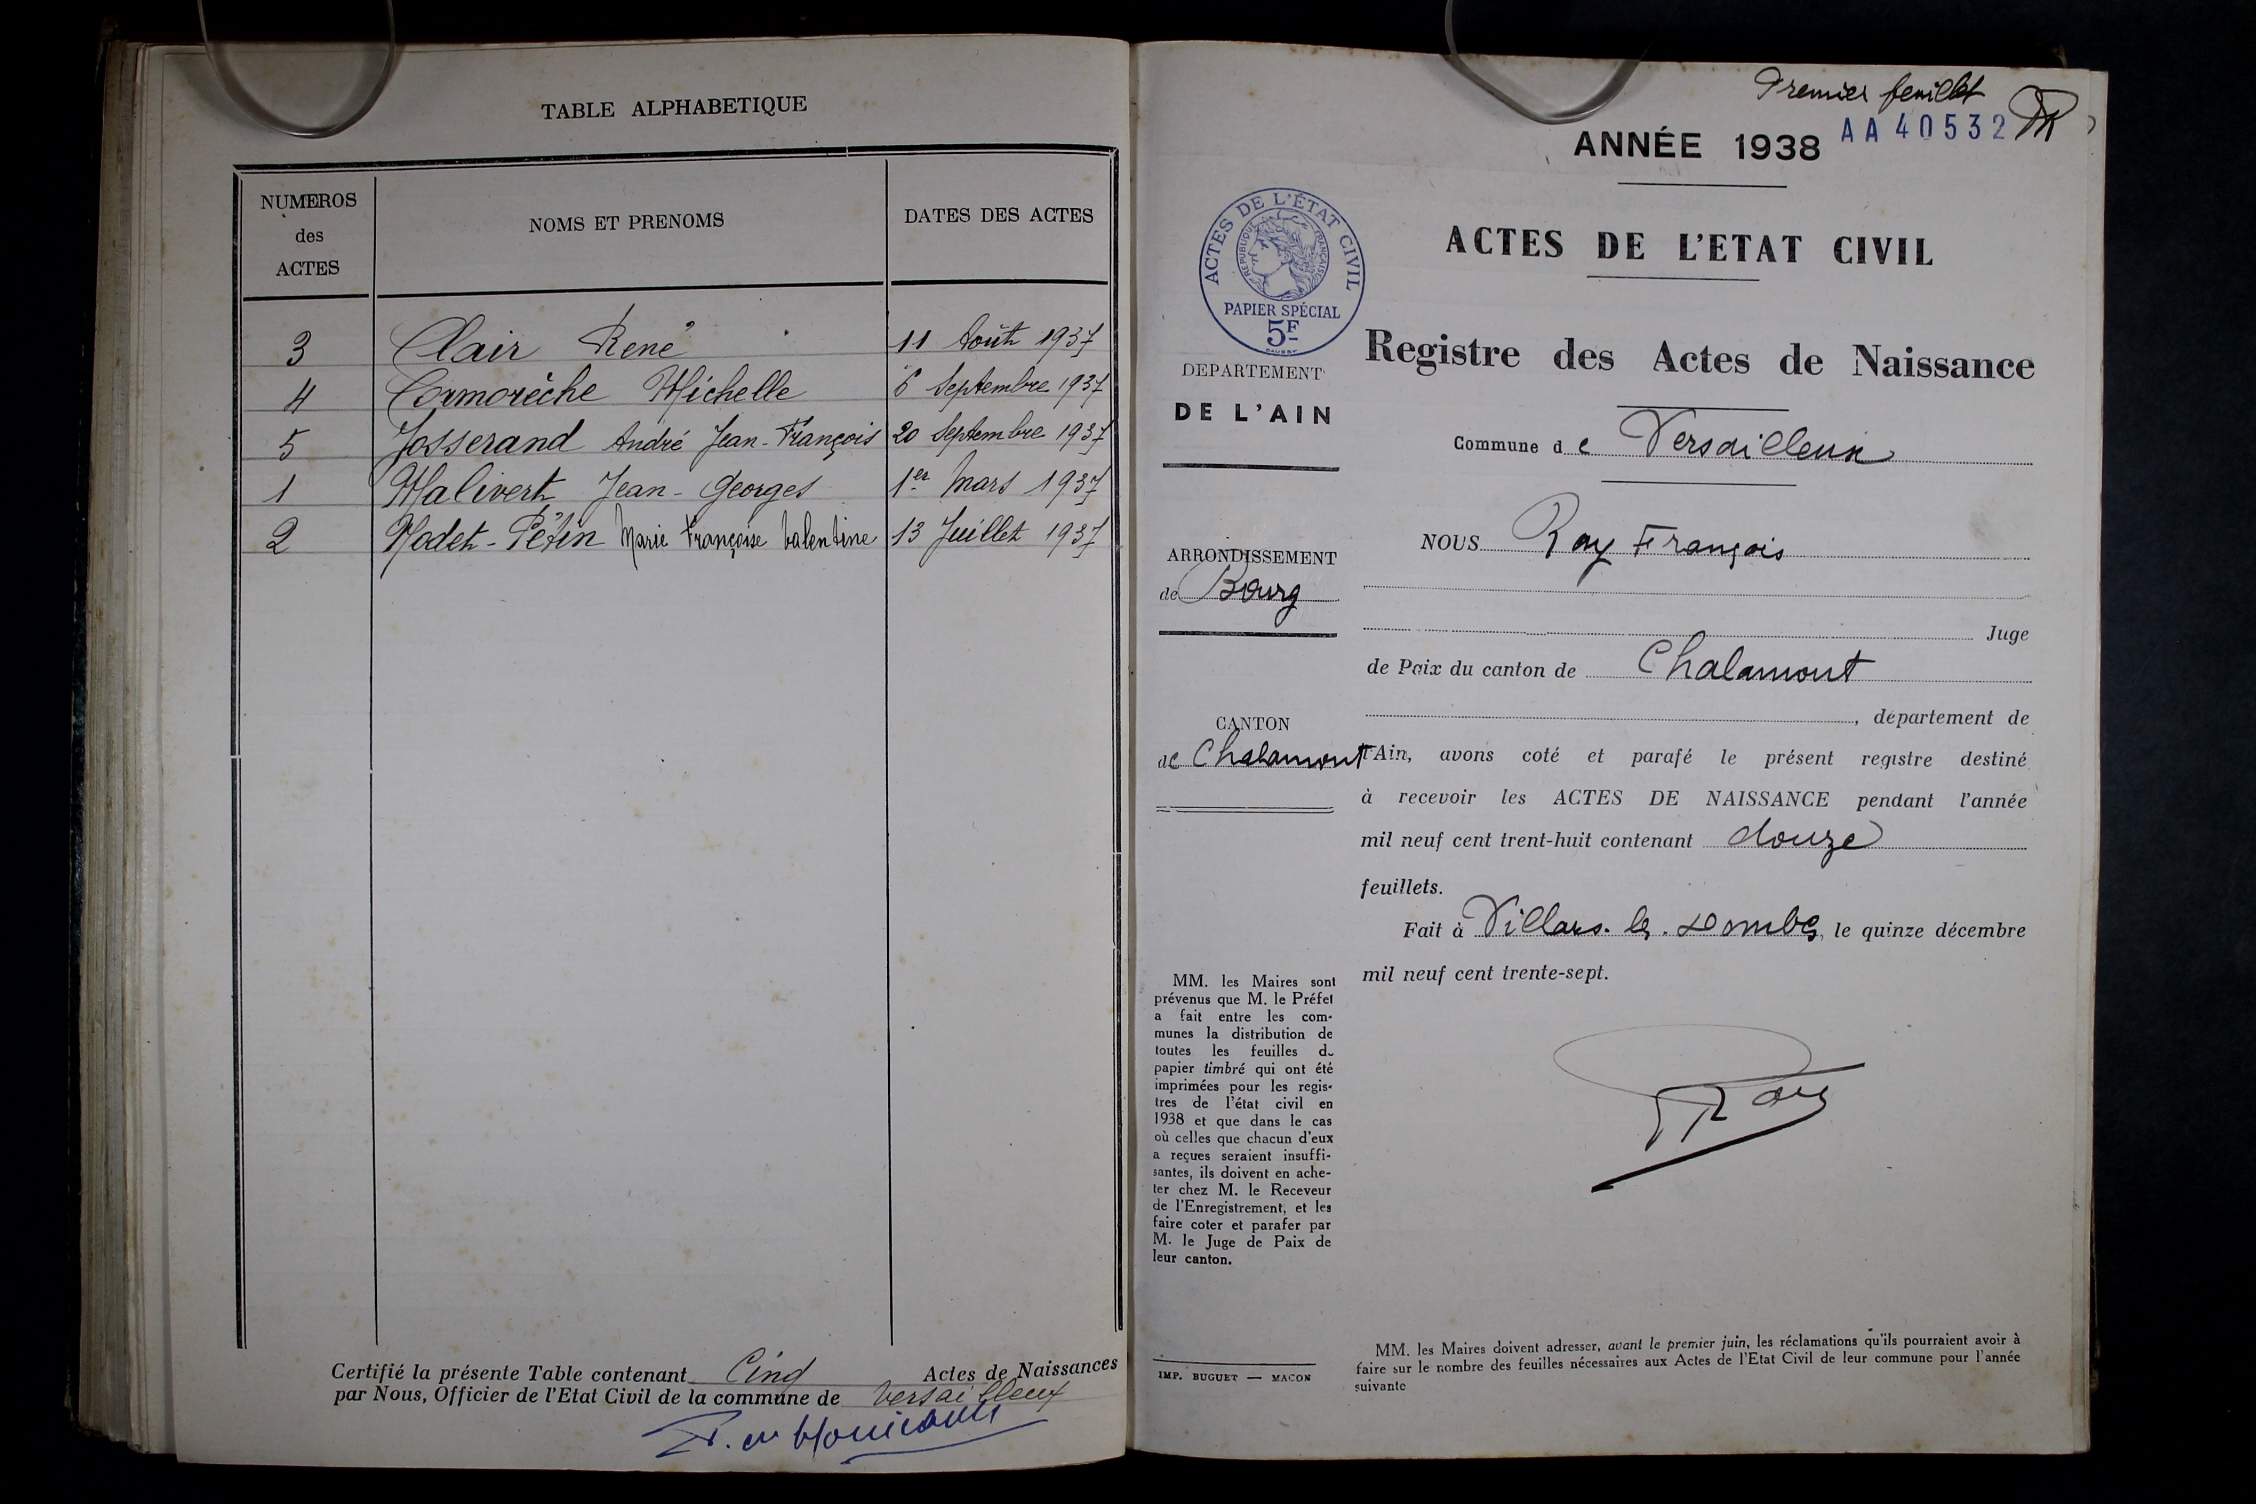 TABLE ALPHABETIQUE
NUMEROS
des
ACTES
NOMS ET PRENOMS
DATES DES ACTES
3 Clair René 11 Août 1937
4 Cormorèche Michelle 6 Septembre 1937
5 Josserand André Jean-François 20 Septembre 1937
1 Malivert Jean-Georges 1er Mars 1937
2 Marie Françoise Valentine 13 Juillet 1937
Certifié la présente Table contenant Cinq Actes de Naissances
par Nous, Officier de l'Etat Civil de la commune de Versailleux
Premier feuillet
AA40532
ANNÉE 1938
ACTES DE L'ÉTAT CIVIL
REPUBLIQUE FRANÇAISE
PAPIER SPÉCIAL
5F
ACTES DE L'ETAT CIVIL
Registre des Actes de Naissance
DEPARTEMENT
DE L'AIN
Commune de Versailleux
NOUS Roy François
ARRONDISSEMENT
de Bourg
Juge
de Paix du canton de Chalamont
, département de
CANTON
de Chalamont
l'Ain, avons coté et parafé le présent registre destiné
à recevoir les ACTES DE NAISSANCE pendant l'année
mil neuf cent trent-huit contenant douze
feuillets.
Fait à Villars. les. Dombes, le quinze décembre
mil neuf cent trente-sept.
Roy
MM. les Maires sont
prévenus que M. le Préfet
a fait entre les com-
munes la distribution de
toutes les feuilles de
papier timbré qui ont été
imprimées pour les regis-
tres de l'état civil en
1938 et que dans le cas
où celles que chacun d'eux
a reçues seraient insuffi-
santes, ils doivent en ache-
ter chez M. le Receveur
de l'Enregistrement, et les
faire coter et parafer par
M. le Juge de Paix de
leur canton.
IMP. BUGUET — MACON
MM. les Maires doivent adresser, avant le premier juin, les réclamations qu'ils pourraient avoir à
faire sur le nombre des feuilles nécessaires aux Actes de l'Etat Civil de leur commune pour l'année
suivante